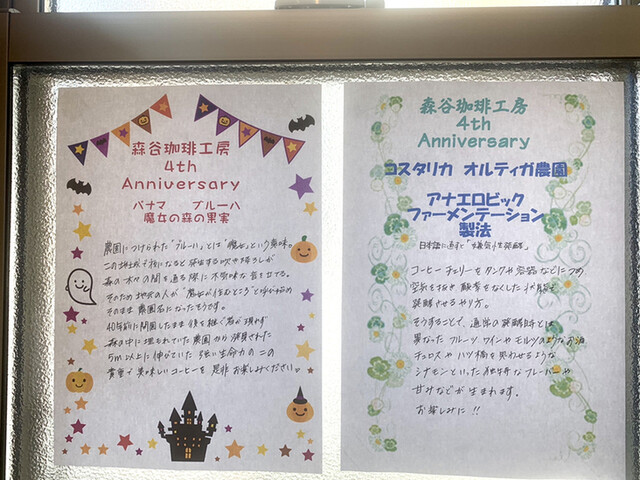 森谷珈琲工房
4th
Anniversary
パナマ ブルーハ
魔女の森の果実
農園につけられた"ブルーハ"とは"魔女"という意味。
この地域で夜になると発生する吹や揺らしが
森の木々の間を通る際に不気味な音を立てる。
そのため地元の人が"魔女が住むところ"と呼び始め
そのまま農園名になったそうです。
40年前に閉園したまま後を継ぐ者が現れず
森の中に埋もれていた農園から発見された
5m以上に伸びていた強い生命力のこの
貴重で美味しいコーヒーを是非お楽しみください。
森谷珈琲工房
4th
Anniversary
コスタリカ オルティガ農園
アナエロビック
ファーメンテーション
製法
日本語に直すと"嫌気性発酵"
コーヒーチェリーをタンクや容器などにつめ
空気を抜き酸素をなくした状態で
発酵させるやり方。
そうすることで、通常の発酵とは
異なったフルーツワインやモルツのようなお酒
チュロスや八ツ橋を思わせるような
シナモンといった独特なフレーバーや
甘みなどが生まれます。
お楽しみに!!